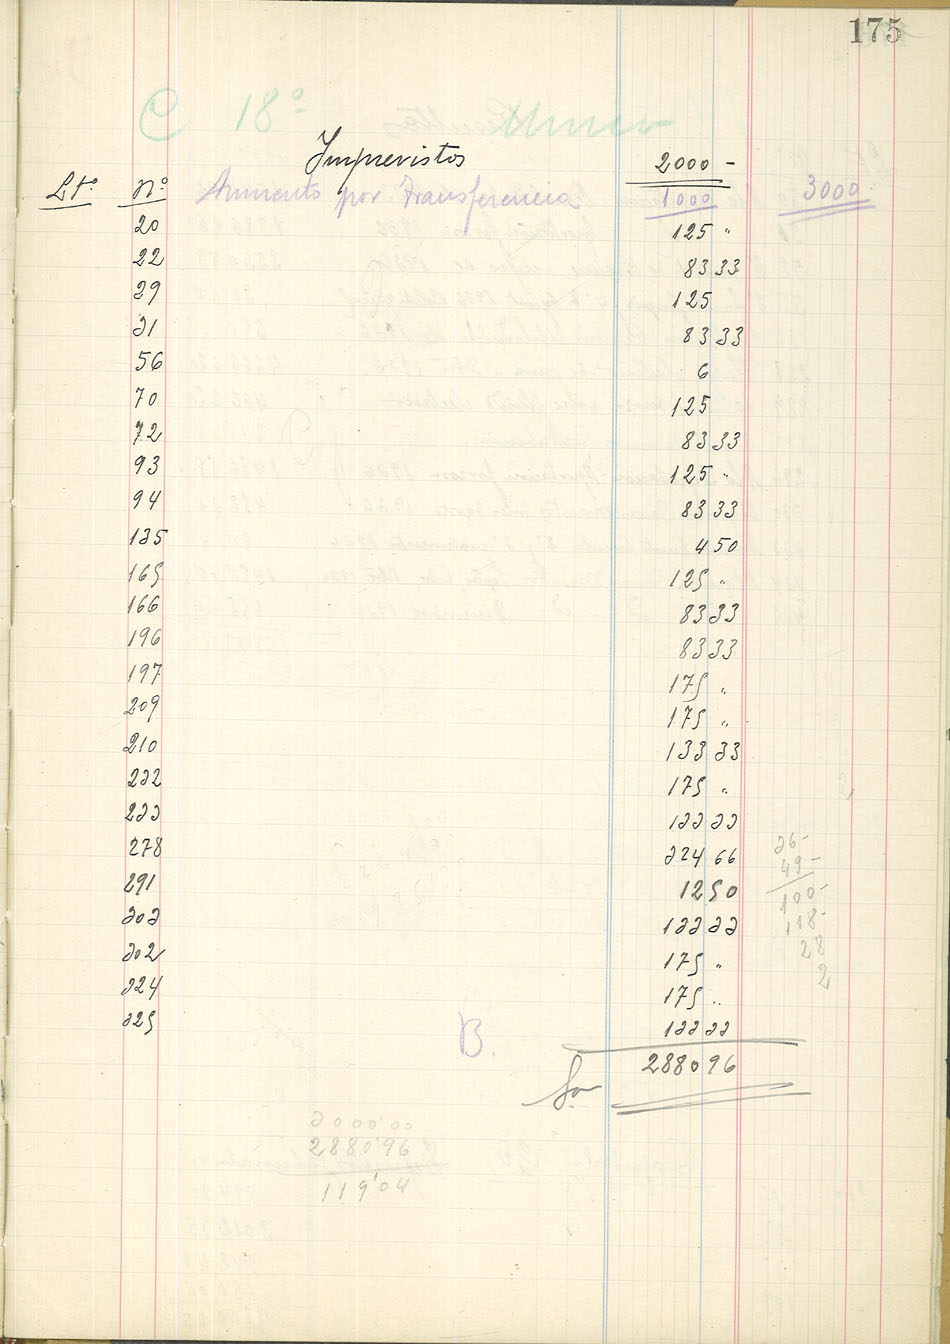 175
C 18º Unico
Imprevistos 2000 -
Lt.º Nº Aumento por Transferencia 1000 3000
20 125 "
22 83 33
29 125
31 83 33
56 6
70 125
72 83 33
93 125 "
94 83 33
135 4 50
165 125 "
166 83 33
196 83 33
197 175 "
209 175 "
210 133 33
232 175 "
233 133 33
278 324 66
291 12 50
303 133 33
302 175 "
324 175 "
325 133 33
26 -
49 -
100 -
118 -
28
2
B.
2880 96
3000'00
2880'96
119'04